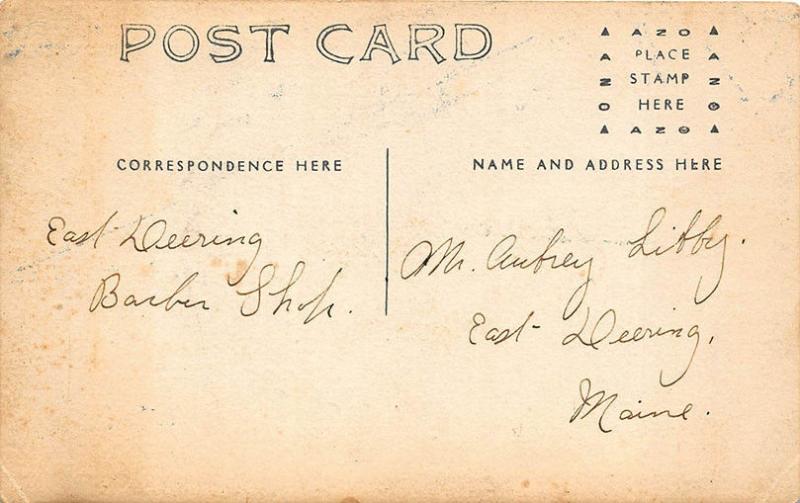 POST CARD
▲ AZO ▲
A PLACE A
Z STAMP Z
O HERE O
▲ AZO ▲
CORRESPONDENCE HERE
NAME AND ADDRESS HERE
East Deering
Barber Shop.
Mr. Aubrey Libby.
East Deering,
Maine.